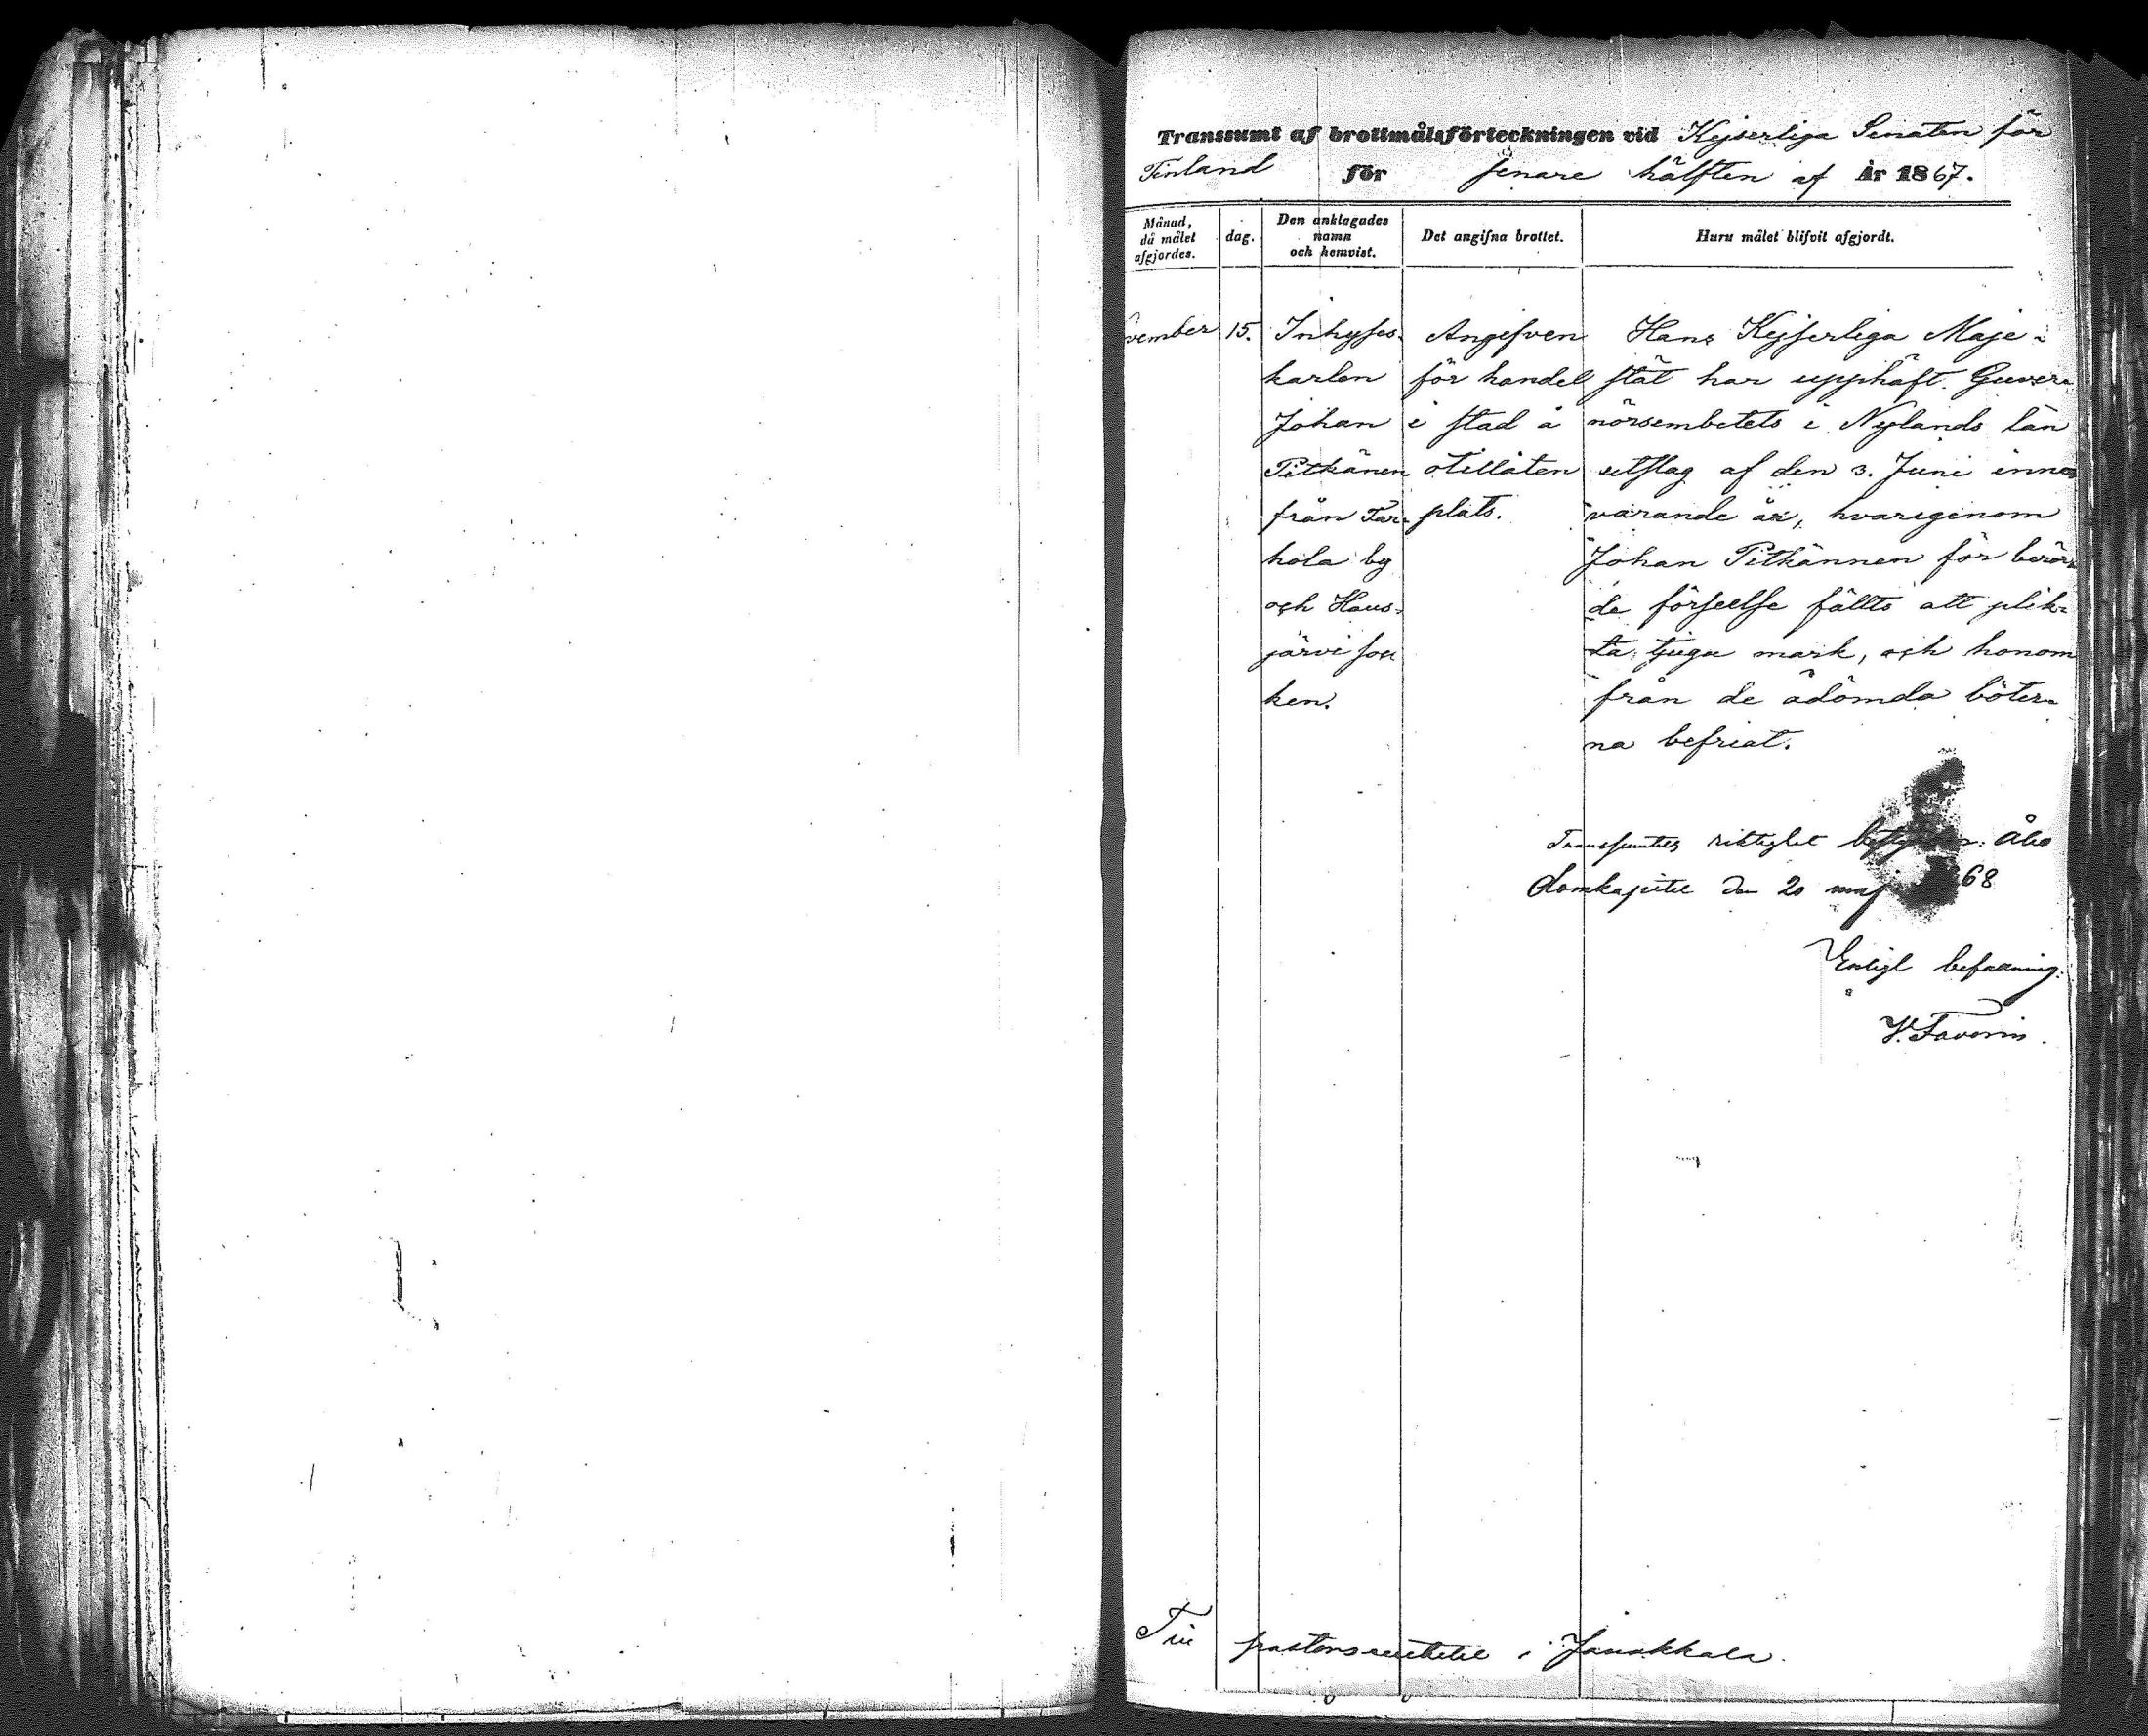 Transsumt af brottmålsförteckningen vid Kejserliga Senaten för
Finland för senare hälften af År 1867.
Månad, då målet afgjordes.
dag.
Den anklagades namn och hemvist.
Det angifna brottet.
Huru målet blifvit afgjordt.
vember
15.
Inhyses-
karlen
Johan
Pitkänen
från Tar-
hola by
och Haus-
järvi soc
ken.
Angifven
för handel
i stad å
otillåten
plats.
Hans Kejserliga Maje-
stät har upphäft Guver-
nörsembetets i Nylands län
utslag af den 3. Juni inne-
varande år, hvarigenom
Johan Pitkännen för berör-
de förseelse fällts att plik-
ta tjugu mark, och honom
från de ådömda böter-
na befriat.
Transsumtets riktighet Åbo
Domkapitel den 20 maj 68
Enligt befallning:
Till pastorsembetet i Janakkala.